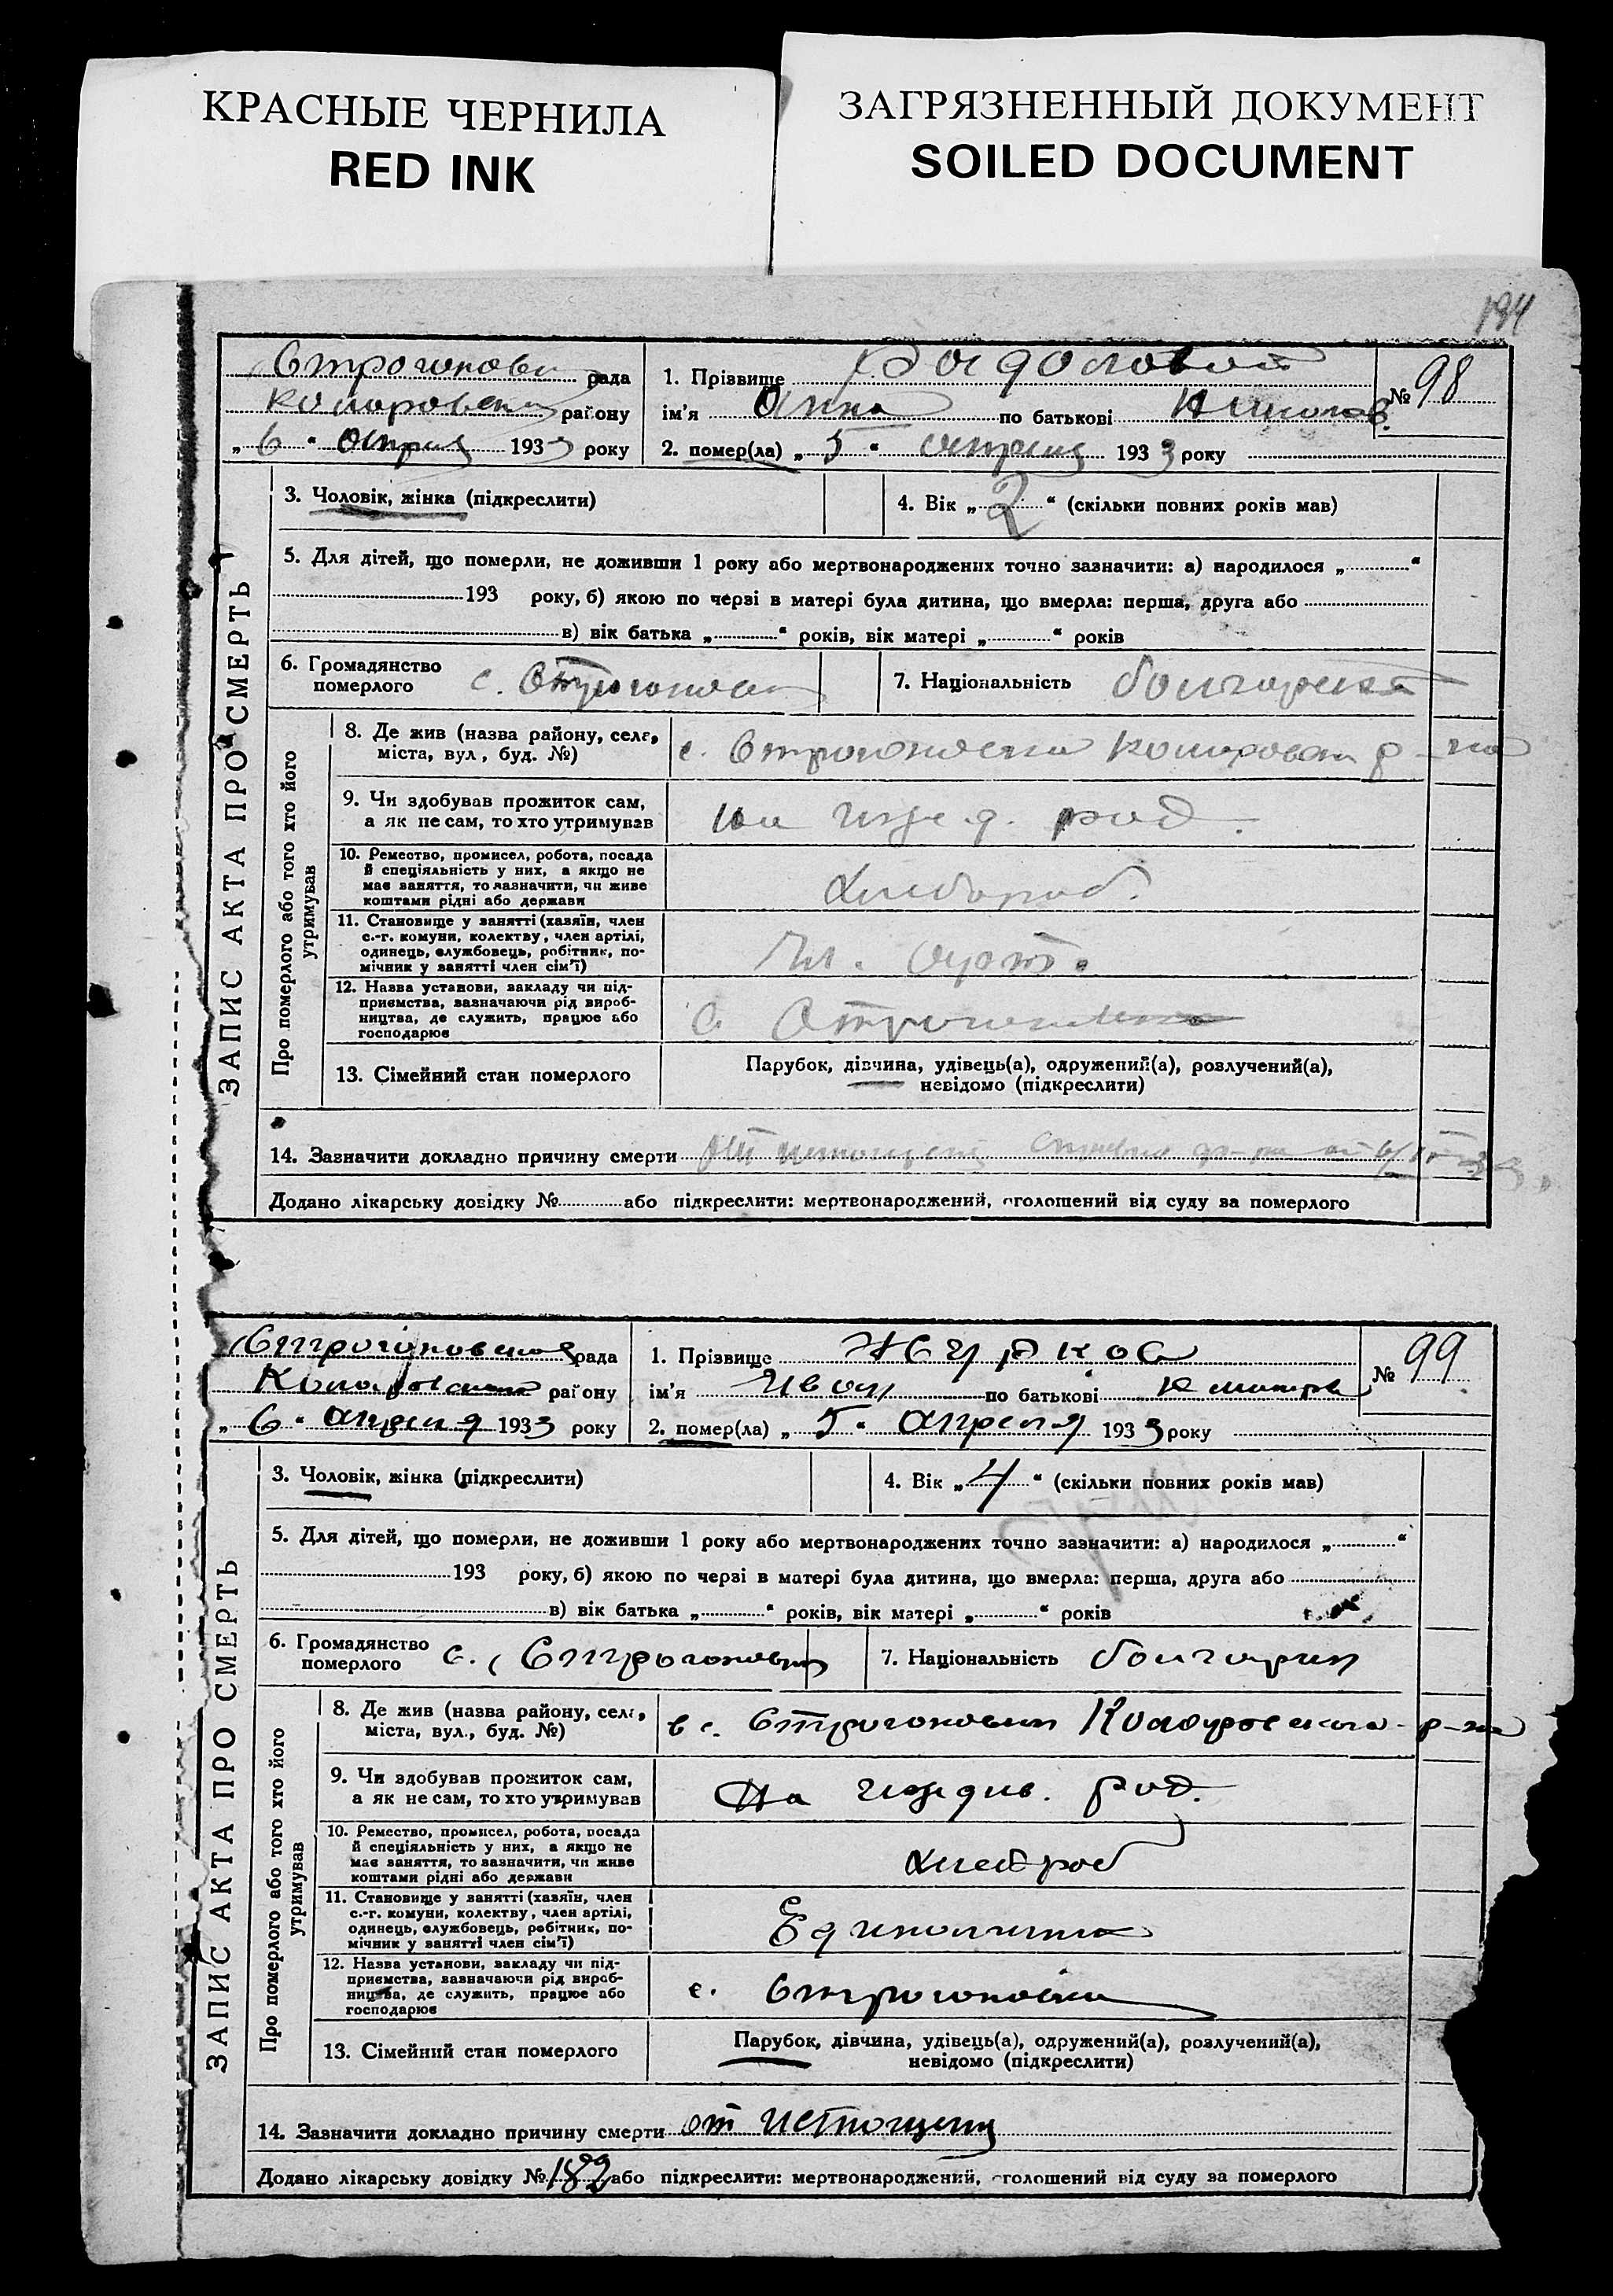 КРАСНЫЕ ЧЕРНИЛА
RED INK
ЗАГРЯЗНЕННЫЙ ДОКУМЕНТ
SOILED DOCUMENT
194
рада
району
„ 6 “ 1933 року
1. Прізвище
№ 98
ім’я Анна по батькові
2. помер(ла) „ 5 “ 1933 року
ЗАПИС АКТА ПРО СМЕРТЬ
3. Чоловік, жінка (підкреслити)
4. Вік „ 2 “ (скільки повних років мав)
5. Для дітей, що померли, не доживши 1 року або мертвонароджених точно зазначити: а) народилося „ “
193 року, б) якою по черзі в матері була дитина, що вмерла: перша, друга або
в) вік батька „ “ років, вік матері „ “ років
6. Громадянство
померлого
с.
7. Національність
Про померлого або того хто його
утримував
8. Де жив (назва району, села,
міста, вул., буд. №)
с. р-на
9. Чи здобував прожиток сам,
а як не сам, то хто утримував
на ижд. род.
10. Ремество, промисел, робота, посада
й спеціяльність у них, а якщо не
має заняття, то зазначити, чи живе
коштами рідні або держави
Хлебороб.
11. Становище у занятті (хазяїн, член
с.-г. комуни, колектву, член артілі,
одинець, службовець, робітник, по-
мічник у занятті член сім’ї)
Чл. арт.
12. Назва установи, закладу чи під-
приємства, зазначаючи рід вироб-
ництва, де служить, працює або
господарює
с.
13. Сімейний стан померлого
Парубок, дівчина, удівець(а), одружений(а), розлучений(а),
невідомо (підкреслити)
14. Зазначити докладно причину смерти
Додано лікарську довідку № або підкреслити: мертвонароджений, оголошений від суду за померлого
рада
району
„ 6 “ апреля 1933 року
1. Прізвище
№ 99
ім’я Иван по батькові
2. помер(ла) „ 5 “ апреля 1933 року
ЗАПИС АКТА ПРО СМЕРТЬ
3. Чоловік, жінка (підкреслити)
4. Вік „ 4 “ (скільки повних років мав)
5. Для дітей, що померли, не доживши 1 року або мертвонароджених точно зазначити: а) народилося „ “
193 року, б) якою по черзі в матері була дитина, що вмерла: перша, друга або
в) вік батька „ “ років, вік матері „ “ років
6. Громадянство
померлого
с. Строгоновки
7. Національність болгарин
Про померлого або того хто його
утримував
8. Де жив (назва району, села,
міста, вул., буд. №)
в с. Строгоновки р-на
9. Чи здобував прожиток сам,
а як не сам, то хто утримував
На иждив. род.
10. Ремество, промисел, робота, посада
й спеціяльність у них, а якщо не
має заняття, то зазначити, чи живе
коштами рідні або держави
11. Становище у занятті (хазяїн, член
с.-г. комуни, колектву, член артілі,
одинець, службовець, робітник, по-
мічник у занятті член сім’ї)
12. Назва установи, закладу чи під-
приємства, зазначаючи рід вироб-
ництва, де служить, працює або
господарює
с. Строгоновки
13. Сімейний стан померлого
Парубок, дівчина, удівець(а), одружений(а), розлучений(а),
невідомо (підкреслити)
14. Зазначити докладно причину смерти от истощения
Додано лікарську довідку № 182 або підкреслити: мертвонароджений, оголошений від суду за померлого